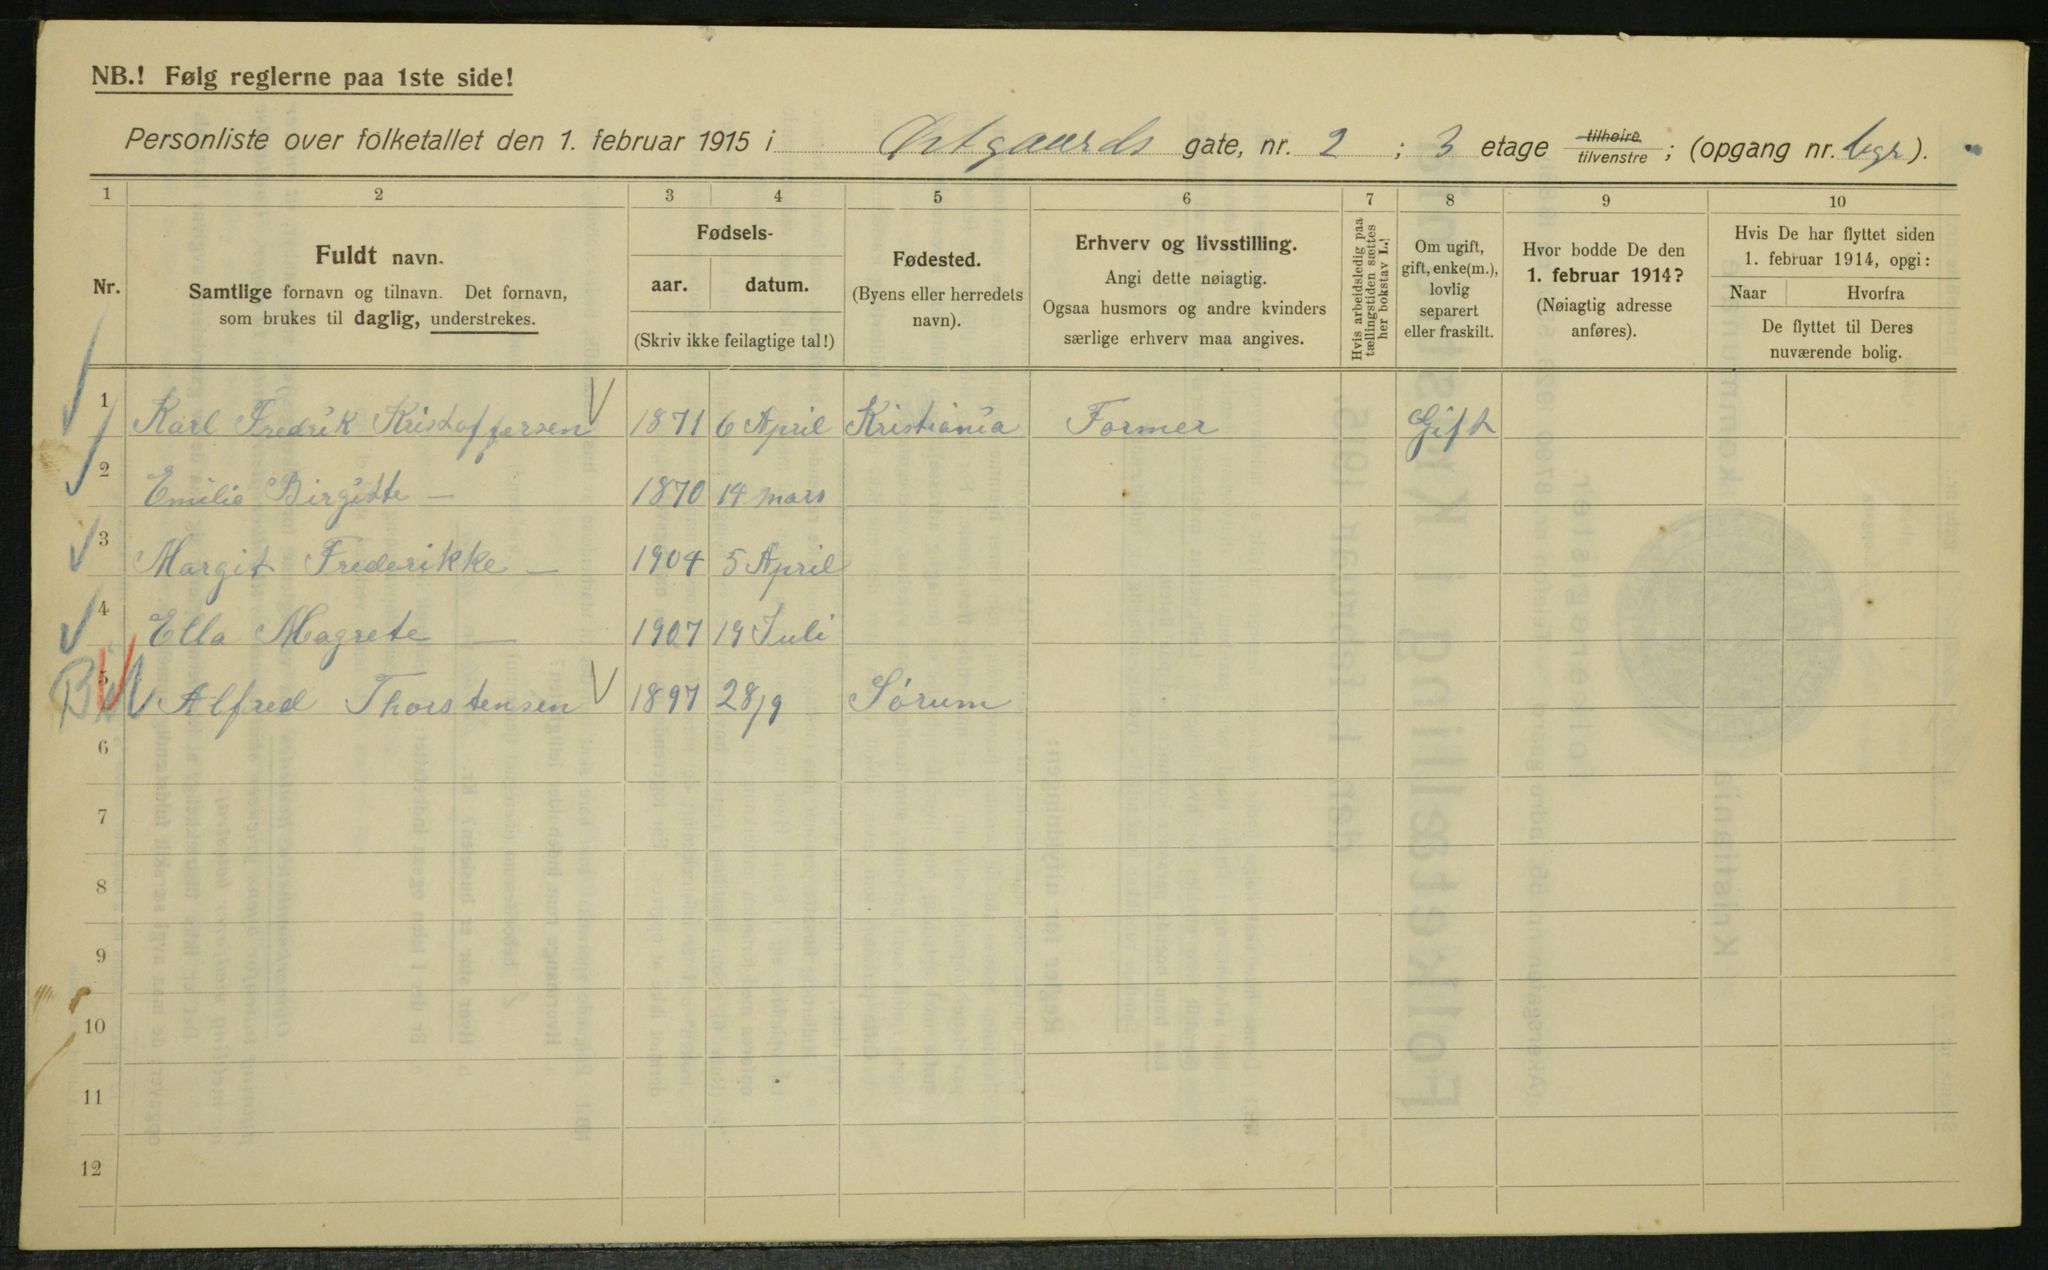 NB.! Følg reglerne paa 1ste side!
Personliste over folketallet den 1. februar 1915 i Østgaards gate, nr. 2 ; 3 etage tilhøire tilvenstre ; (opgang nr. bgr).
1 2 3 4 5 6 7 8 9 10
Nr.
Fuldt navn.
Samtlige fornavn og tilnavn. Det fornavn,
som brukes til daglig, understrekes.
Fødsels-
aar. datum.
(Skriv ikke feilagtige tal!)
Fødested.
(Byens eller herredets
navn).
Erhverv og livsstilling.
Angi dette nøiagtig.
Ogsaa husmors og andre kvinders
særlige erhverv maa angives.
Hvis arbeidsledig paa
tællingstiden sættes
her bokstav L.!
Om ugift,
gift, enke(m.),
lovlig
separert
eller fraskilt.
Hvor bodde De den
1. februar 1914?
(Nøiagtig adresse
anføres).
Hvis De har flyttet siden
1. februar 1914, opgi:
Naar Hvorfra
De flyttet til Deres
nuværende bolig.
1 Karl Fredrik Kristoffersen 1871 6 April Kristiania Former Gift
2 Emilie Birgitte — 1870 14 mars
3 Margit Frederikke — 1904 5 April
4 Ella Magrete — 1907 19 Juli
5 Alfred Thorstensen 1897 28/9 Sørum
6
7
8
9
10
11
12